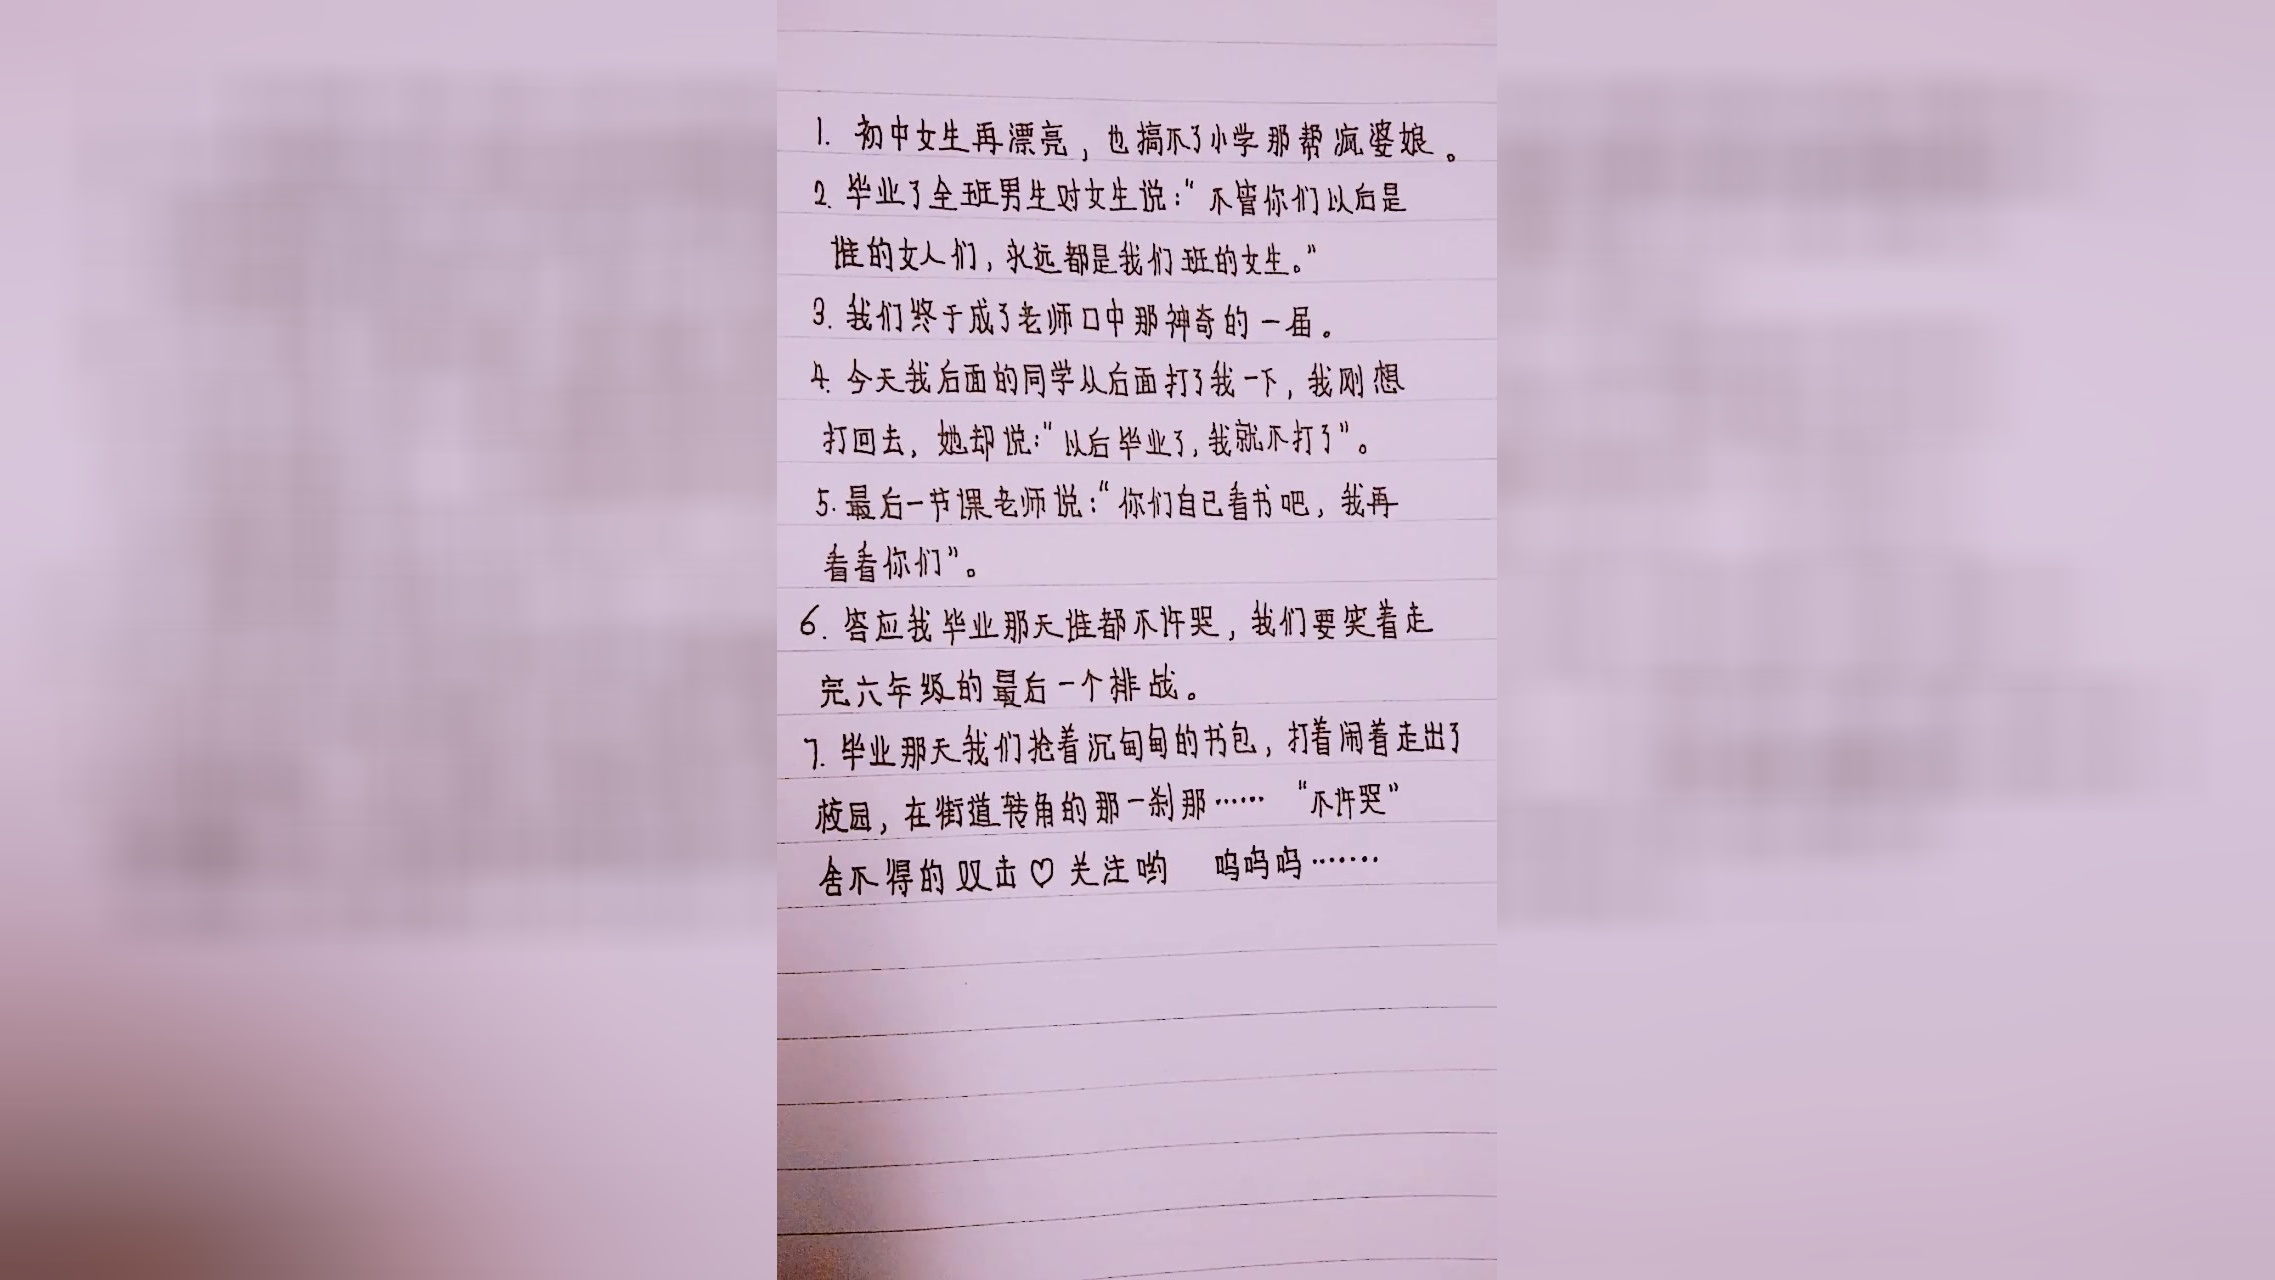 1. 初中女生再漂亮，也搞不了小学那帮疯婆娘。
2. 毕业了全班男生对女生说："不管你们以后是
谁的女人们，永远都是我们班的女生。"
3. 我们终于成了老师口中那神奇的一届。
4. 今天我后面的同学从后面打了我一下，我刚想
打回去，她却说："以后毕业了，我就不打了"。
5. 最后一节课老师说："你们自己看书吧，我再
看看你们"。
6. 答应我毕业那天谁都不许哭，我们要笑着走
完六年级的最后一个挑战。
7. 毕业那天我们抢着沉甸甸的书包，打着闹着走出了
校园，在街道转角的那一刹那…… "不许哭"
舍不得的双击♡关注哟 呜呜呜·······